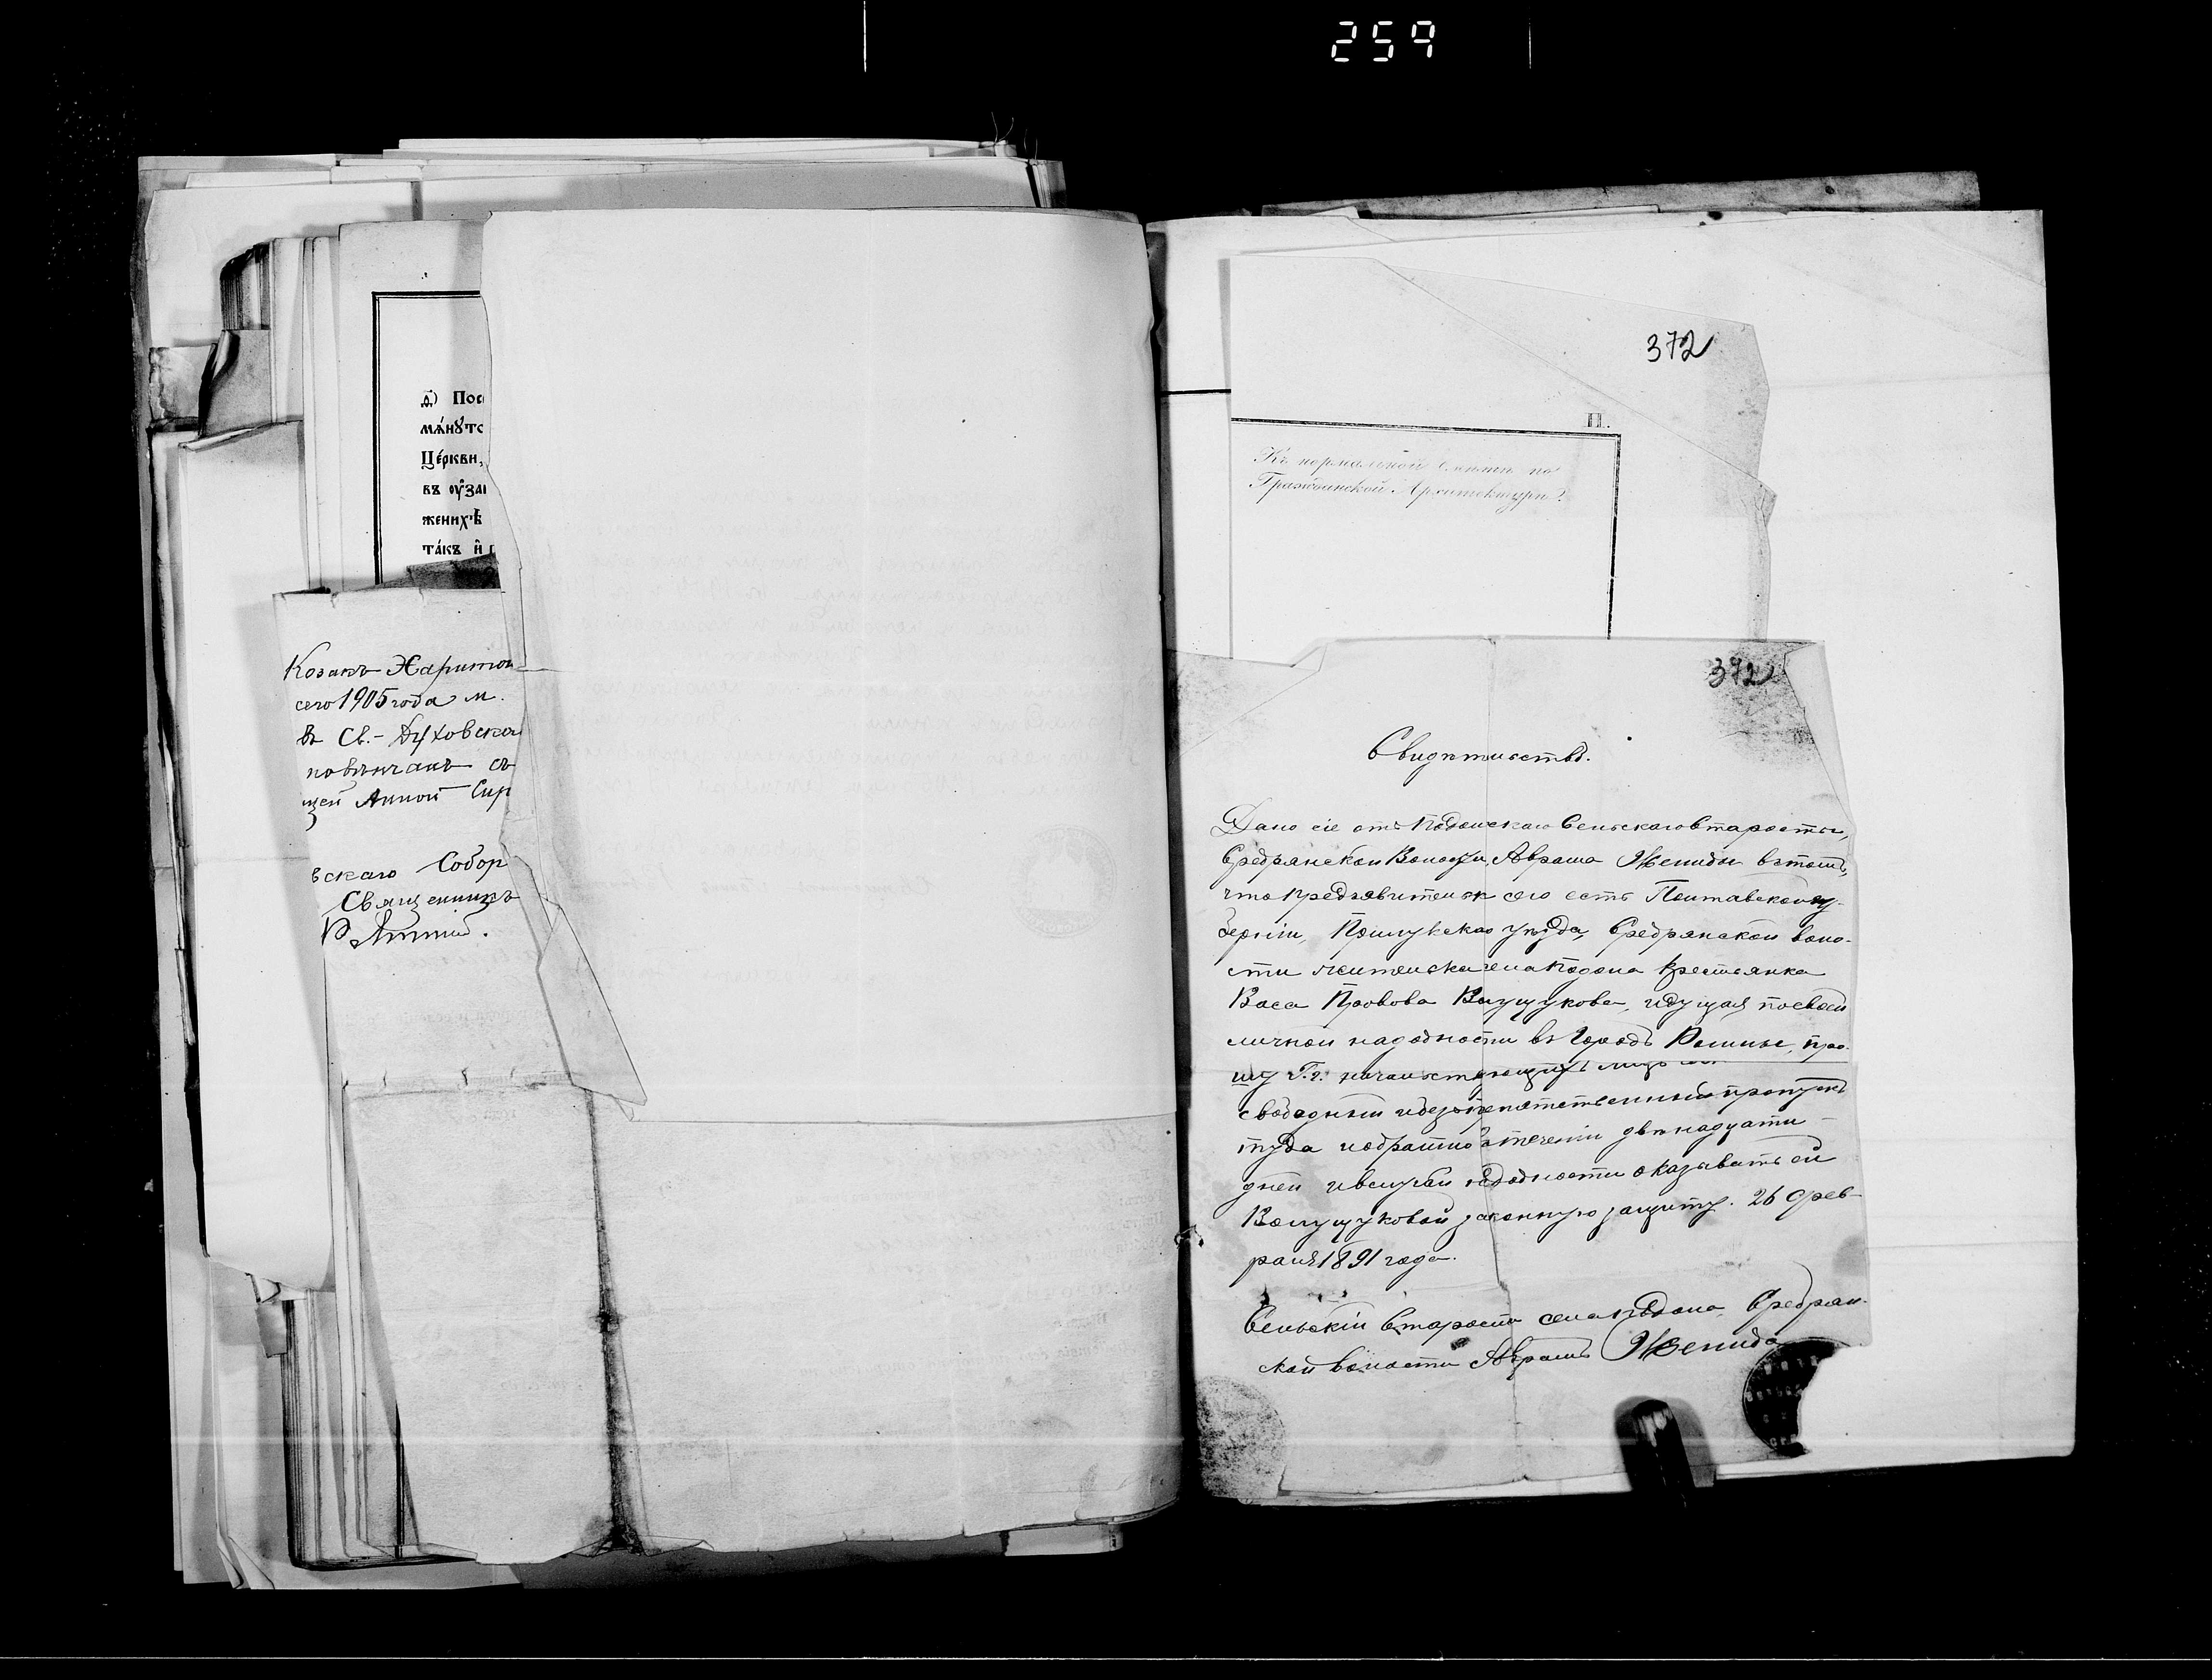 259
д҃) Пос
мѧ́нꙋтс
Це́ркви,
въ ᲂу҆за
женихѣ
та́къ и҆
Козакъ Харитон
сего 1905 года м.
въ Св.-Духовско
повѣнчанъ съ
цей Анной Сир
вскаго Собор
Священникъ
372
П.
Къ нормальной смѣтѣ по
Гражданской Архитектурѣ.
372
Свидѣтельство.
Дано сіе отъ Сельскаго Старосты,
Сребрянской Волости, Аврама Жениды въ томъ,
что предъявителя сего есть Полтавской гу-
берніи, Прилукскаго уѣзда, Сребрянской воло-
сти жителька села крестьянка
Васа идущая по своей
личной надобности въ Городъ Ромны, про-
шу Г.г. начальствующихъ лицъ
свободный и безпрепятственный пропускъ
туда и обратно въ теченіи двѣнадцати
дней и в случаи надобности оказывать ей
законную защиту. 26 фев-
раля 1891 года.
Сельскій Староста села Сребрян-
ской волости Аврамъ Женида